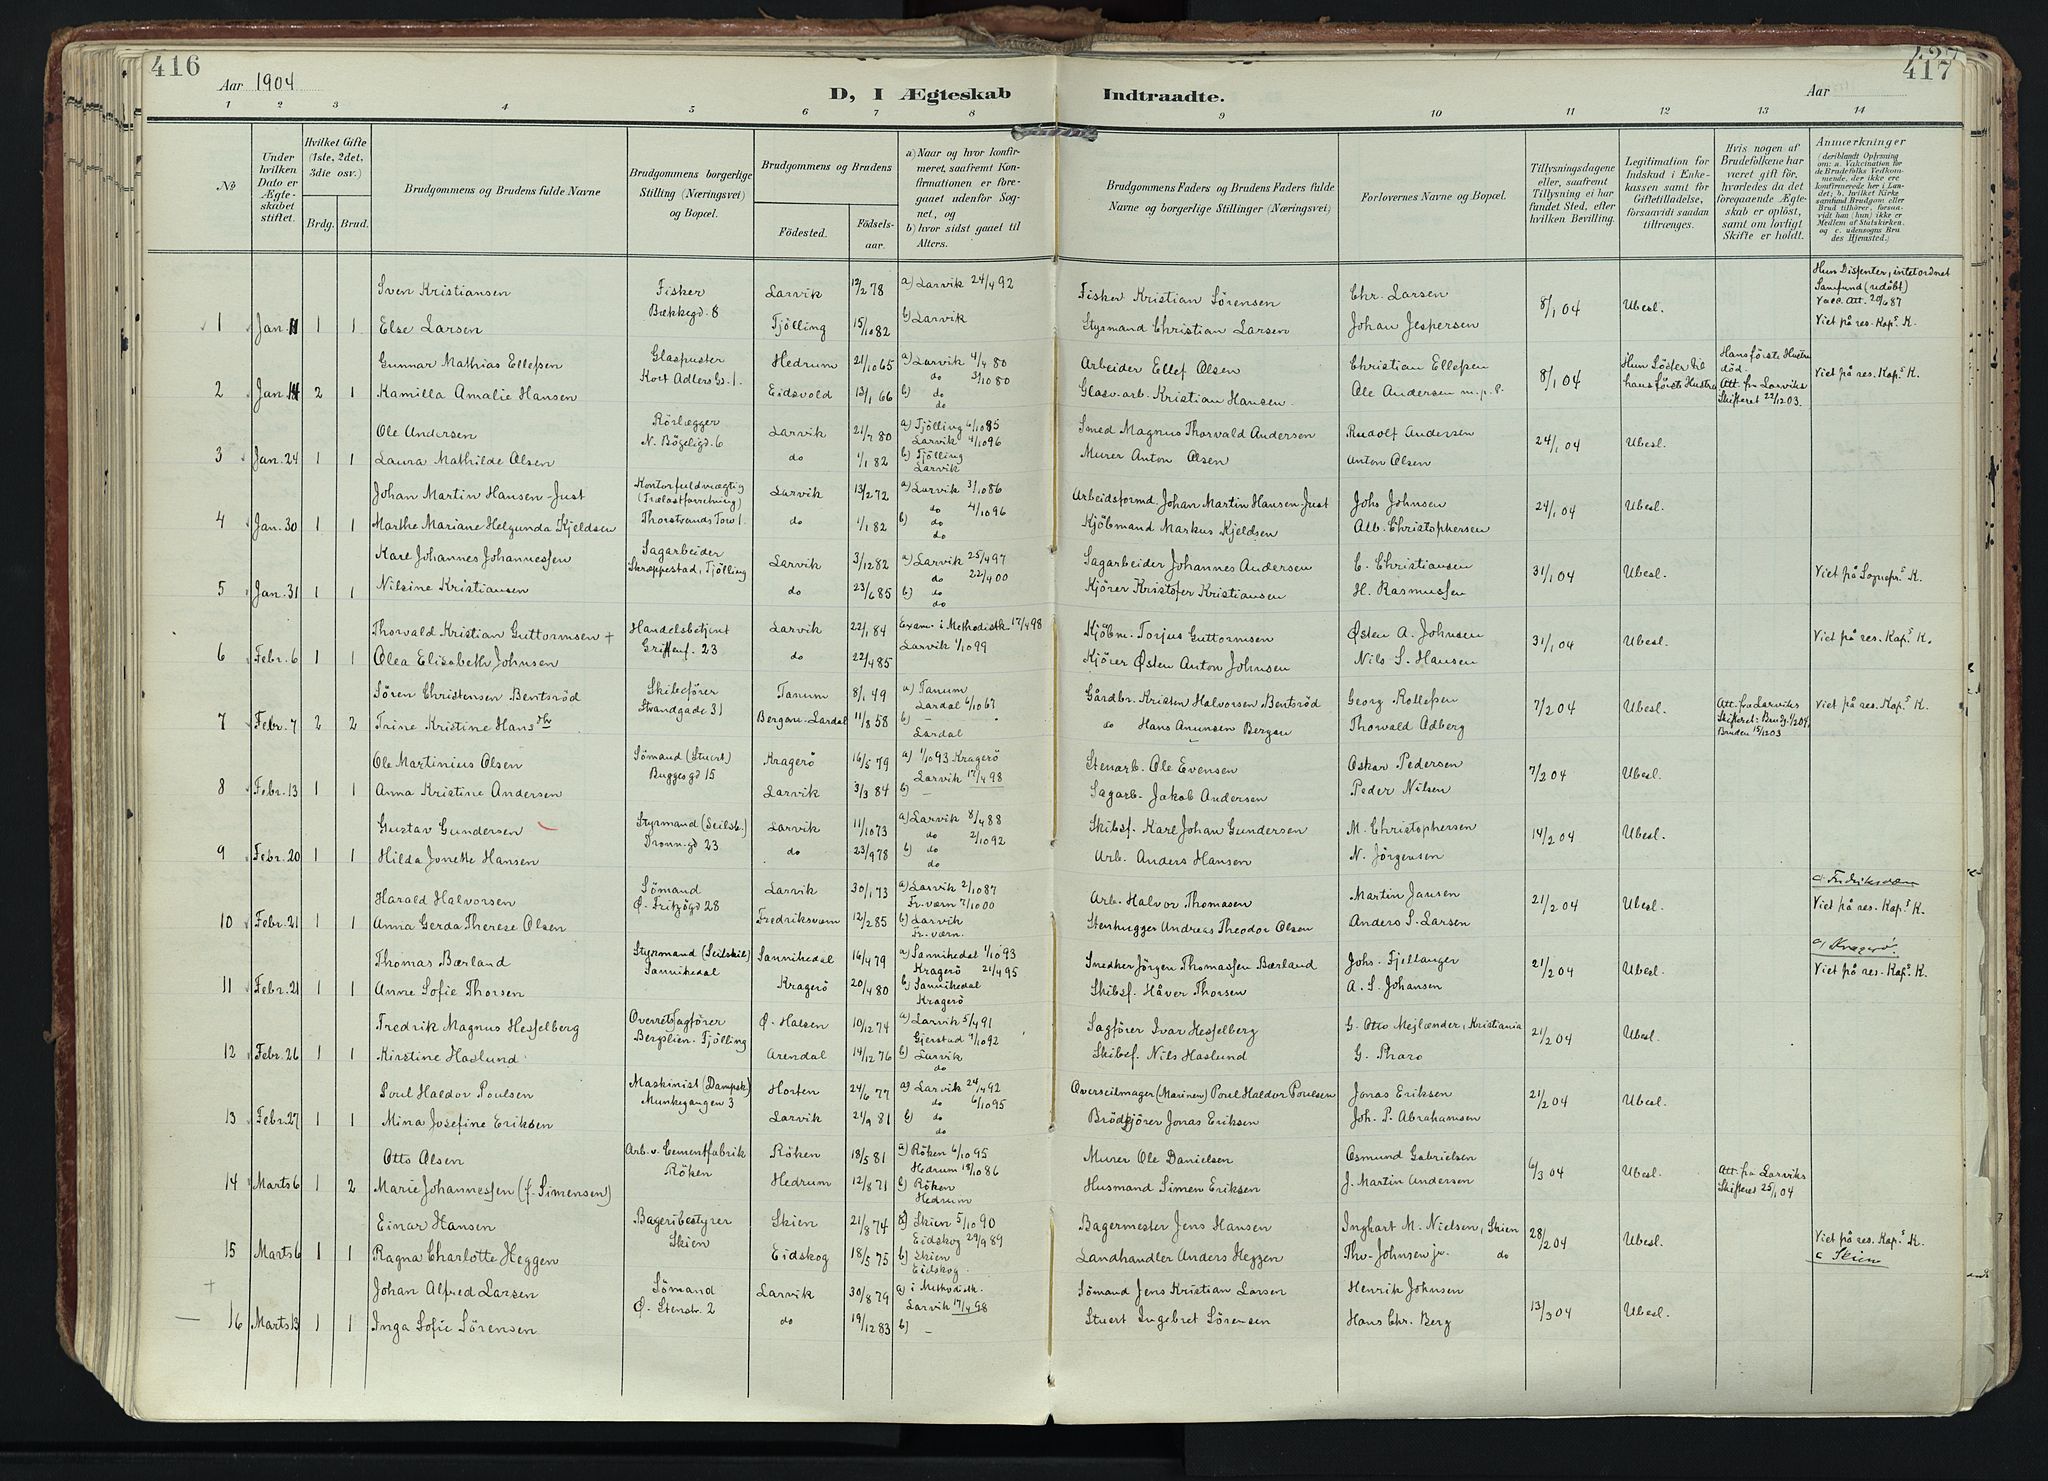 416
427
417
Aar 1904
D, I Ægteskab Indtraadte.
Aar
1 2 3 4 5 6 7 8 9 10 11 12 13 14
No
Under hvilken Dato er Ægteskabet stiftet.
Hvilket Gifte (1ste, 2det, 3die osv.)
Brdg. Brud.
Brudgommens og Brudens fulde Navne
Brudgommens borgerlige Stilling (Næringsvei) og Bopæl.
Brudgommens og Brudens
Fødested. Fødselsaar.
a) Naar og hvor konfirmeret, saafremt Konfirmationen er foregaaet udenfor Sognet, og
b) hvor sidst gaaet til Alters.
Brudgommens Faders og Brudens Faders fulde Navne og borgerlige Stillinger (Næringsvei)
Forlovernes Navne og Bopæl.
Tillysningsdagene eller, saafremt Tillysning ei har fundet Sted, efter hvilken Bevilling.
Legitimation for Indskud i Enkekassen samt for Giftetilladelse, forsaavidt saadan tiltrænges.
Hvis nogen af Brudefolkene har været gift før, hvorledes da det foregaaende Ægteskab er opløst, samt om lovligt Skifte er holdt.
Anmærkninger (deriblandt Oplysning om: a. Vakcination for de Brudefolks Vedkommende, der ikke ere konfirmerede her i Landet; b. hvilket Kirkesamfund Brudgom eller Brud tilhører, forsaavidt han (hun) ikke er Medlem af Statskirken, og c. udensogns Brudes Hjemsted.)
Sven Kristiansen Fisker Larvik 12/2 78 a) Larvik 24/4 92 Fisker Kristian Sörensen Chr. Larsen Hun Dissenter, intet ordnet Samfund (udöbt) Vacc. Att. 20/6 87
1 Jan. 11 1 1 Else Larsen Bækkegd. 8 Tjölling 15/10 82 b) Larvik Styrmand Christian Larsen Johan Jespersen 8/1 04 Ubesl. Viet på res. Kap.s K.
Gunnar Mathias Ellefsen Glaspuster Hedrum 21/10 65 a) Larvik 4/4 80 do 3/10 80 Arbeider Ellef Olsen Christian Ellefsen Hun Söster til hans förste Hustru Hans förste Hustru död.
2 Jan. 14 2 1 Kamilla Amalie Hansen Kort Adlers G. 1. Eidsvold 13/1 66 b) do do Glasv. arb. Kristian Hansen. Ole Andersen m. p. P. 8/1 04 Att. fra Larviks Skifteret 22/12 03. Viet på res. Kap.s K.
Ole Andersen Rörlægger Larvik 21/7 80 a) Tjölling 6/10 85 Larvik 4/10 96 Smed Magnus Thorvald Andersen Rudolf Andersen
3 Jan. 24 1 1 Laura Mathilde Olsen N. Bögeligd. 6 do 1/1 82 b) Tjölling Larvik Murer Anton Olsen Anton Olsen 24/1 04 Ubesl.
Johan Martin Hansen-Just Kontorfuldmægtig (Trælastforretning) Larvik 13/2 72 a) Larvik 3/10 86 do 4/10 96 Arbeidsformd. Johan Martin Hansen-Just Johs Johnsen
4 Jan. 30 1 1 Marthe Mariane Helgunda Kjeldsen Thorstrands Torv 1. do 1/1 82 b) do do Kjöbmand Markus Kjeldsen Alb. Christophersen 24/1 04 Ubesl.
Karl Johannes Johannessen Sagarbeider Larvik 3/12 82 a) Larvik 25/4 97 do 22/4 00 Sagarbeider Johannes Andersen C. Christiansen
5 Jan. 31 1 1 Nilsine Kristiansen Skræppestad, Tjölling do 23/6 85 b) do do Kjörer Kristofer Kristiansen H. Rasmussen 31/1 04 Ubesl. Viet på Sognepr.s K.
Thorvald Kristian Guttormsen + Handelsbetjent Larvik 22/1 84 Exam. i Methodistk. 17/4 98 Kjöbm. Torjus Guttormsen Østen A. Johnsen
6 Febr. 6 1 1 Olea Elisabeth Johnsen Griffenf. 23 do 22/4 85 Larvik 1/10 99 Kjörer Østen Anton Johnsen Nils S. Hansen 31/1 04 Ubesl. Viet på res. Kap.s K.
Sören Christensen Bentsröd Skibsförer Tanum 8/1 49 a) Tanum Lardal 6/10 67 Gårdbr. Kristen Halvorsen Bentsröd Georg Rollefsen
7 Febr. 7 2 2 Trine Kristine Hansdtr Strandgade 31 Bergan-Lardal 11/8 58 b) - Lardal do Hans Anunsen Bergan Thorvald Adberg 7/2 04 Ubesl. Att. fra Larviks Skifteret: Brudg. 1/2 04, Bruden 15/12 03 Viet på res. Kap.s K.
Ole Martinius Olsen Sömand (Stuert) Kragerö 16/5 79 a) 1/10 93 Kragerö Larvik 17/4 98 Stenarb. Ole Evensen Oskar Pedersen
8 Febr. 13 1 1 Anna Kristine Andersen Buggesgd 15 Larvik 3/3 84 b) - Sagarb. Jakob Andersen Peder Nilsen 7/2 04 Ubesl.
Gustav Gundersen Styrmand (Seilsk.) Larvik 11/10 73 a) Larvik 8/4 88 do 2/10 92 Skibsf. Karl Johan Gundersen M. Christophersen
9 Febr. 20 1 1 Hilda Jonette Hansen Dronn. gd 23 do 23/9 78 b) do do Arb. Anders Hansen N. Jörgensen 14/2 04 Ubesl.
Harald Halvorsen Sömand Larvik 30/1 73 a) Larvik 2/10 87 Fr.værn 7/10 00 Arb. Halvor Thomasen Martin Jansen
10 Febr. 21 1 1 Anna Gerda Therese Olsen Ø. Fritzögd 28 Fredriksværn 12/2 85 b) Larvik Fr. værn. Stenhugger Andreas Theodor Olsen Anders S. Larsen 21/2 04 Ubesl. c) Fredriksværn Viet på res. Kap.s K.
Thomas Bærland Styrmand (Seilskib) Sannikedal 16/4 79 a) Sannikedal 1/10 93 Kragerö 21/4 95 Snedker Jörgen Thomassen Bærland Johs. Fjellanger
11 Febr. 21 1 1 Anne Sofie Thorsen Sannikedal Kragerö 20/4 80 b) Sannikedal Kragerö Skibsf. Håver Thorsen A. S. Johansen 21/2 04 Ubesl. c) Kragerö Viet på res. Kap.s K.
Fredrik Magnus Hesselberg Overretssagförer Ø. Halsen 10/12 74 a) Larvik 5/4 91 Gjerstad 4/10 92 Sagförer Ivar Hesselberg G. Otto Mejlænder, Kristiania
12 Febr. 26 1 1 Kirstine Haslund Bergslien. Tjölling Arendal 14/12 76 b) Larvik do Skibsf. Nils Haslund G. Pharo 21/2 04 Ubesl.
Poul Haldor Poulsen Maskinist (Dampsk.) Horten 24/6 77 a) Larvik 24/4 92 do 6/10 95 Overseilmager (Marinen) Poul Haldor Poulsen Jonas Eriksen
13 Febr. 27 1 1 Mina Josefine Eriksen Munkegangen 3 Larvik 21/9 81 b) do do Brödkjörer Jonas Eriksen Joh. P. Abrahamsen 21/2 04 Ubesl.
Otto Olsen Arb. v. Cementfabrik Röken 18/5 81 a) Röken 6/10 95 Hedrum 18/10 86 Murer Ole Danielsen Osmund Gabrielsen
14 Marts 6 1 2 Marie Johannessen (f. Simensen) Röken Hedrum 12/8 71 b) Röken Hedrum Husmand Simen Eriksen J. Martin Andersen 6/3 04 Ubesl. Att. fra Larviks Skifteret 25/1 04
Einar Hansen Bageribestyrer Skien 21/8 74 a) Skien 5/10 90 Eidskog 29/9 89 Bagermester Jens Hansen Inghart M. Nielsen, Skien
15 Marts 6 1 1 Ragna Charlotte Heggen Skien Eidskog 18/5 75 b) Skien Eidskog. Landhandler Anders Heggen Thv. Johnsen jr. do 28/2 04 Ubesl. Viet på res. Kap.s K. c Skien
+ Johan Alfred Larsen Sömand Larvik 30/8 79 a) i Methodistk. Larvik 17/4 98 Sömand Jens Kristian Larsen Henrik Johnsen
16 Marts 13 1 1 Inga Sofie Sörensen Ø. Stenstr. 2 do 19/12 83 b) - Stuert Ingebret Sörensen Hans Chr. Berg 13/3 04 Ubesl.